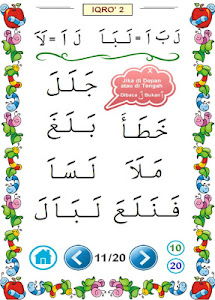 IQRO' 2
لَ بَ اَ = لَبَاَ لَ اَ = لَاَ
جَلَلَ
Jika di Depan
atau di Tengah
Dibaca Bukan
خَطَأَ بَلَغَ
مَلَاَ لَسَاَ
فَنَلَعَ لَبَاَلَ
11/20
10
20